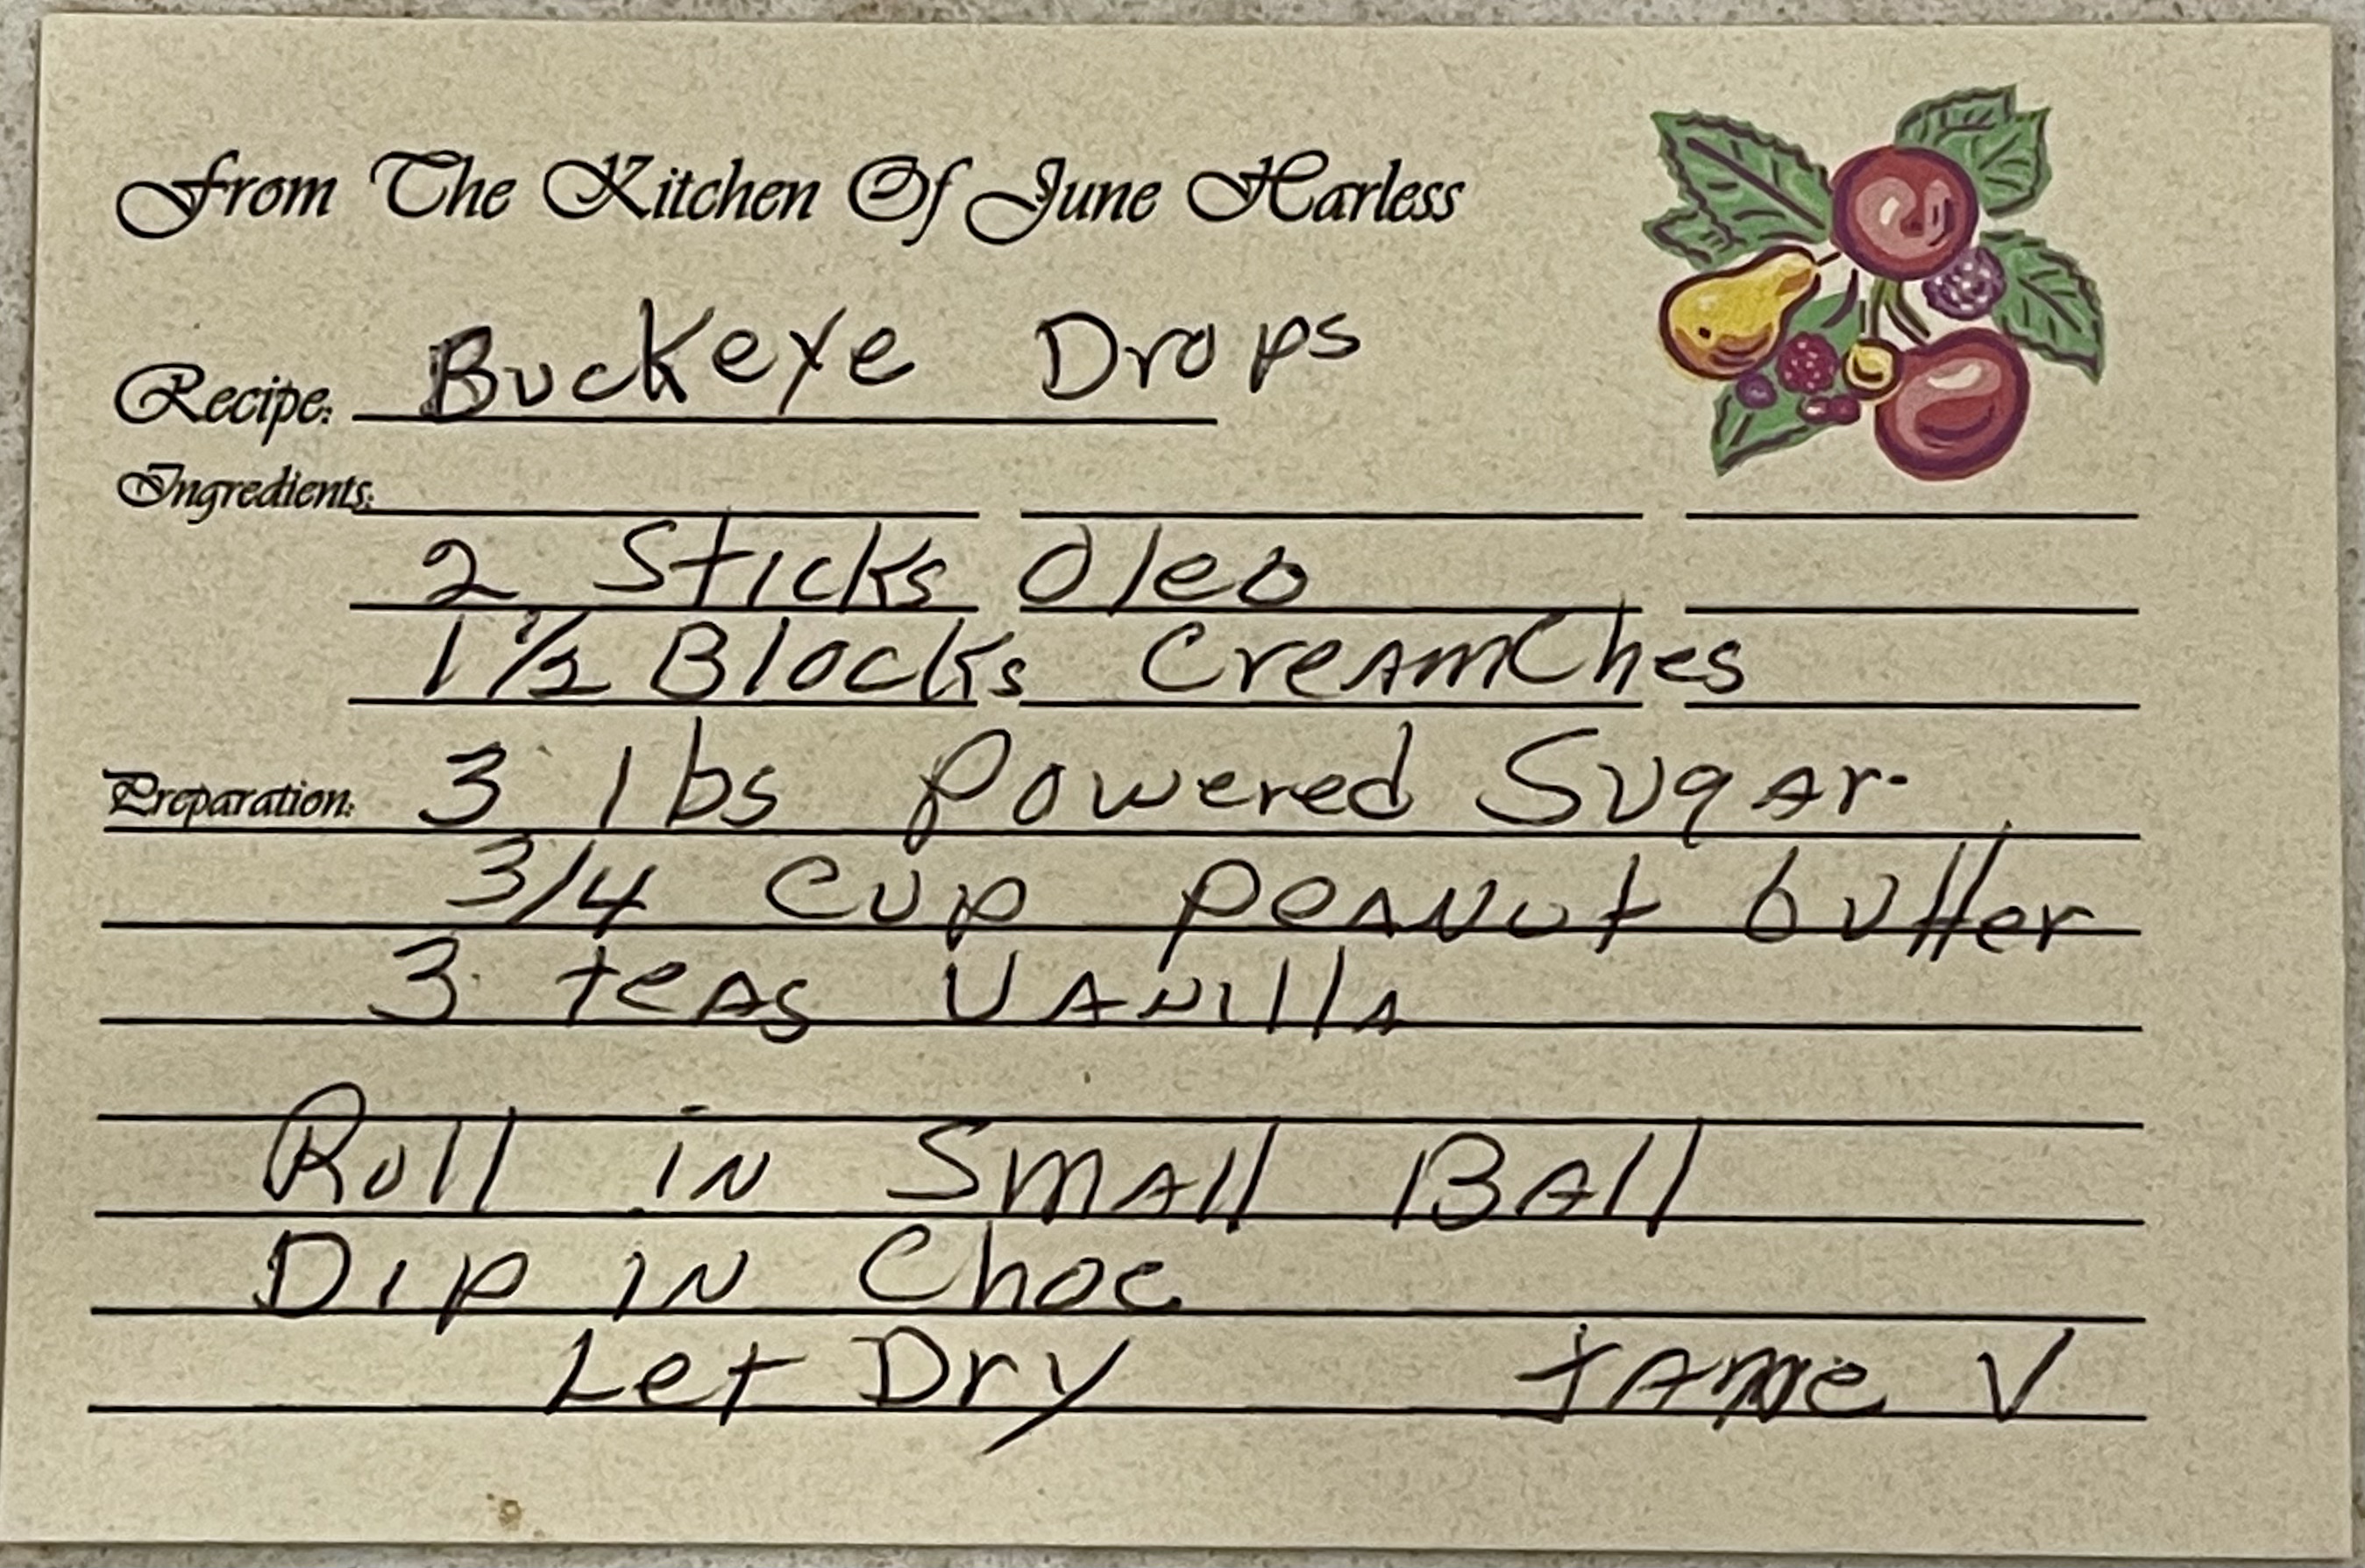 From The Kitchen Of June Harless
Recipe: Buckeye Drops
Ingredients:
2 Sticks Oleo
1 1/2 Blocks CreamChes
Preparation: 3 lbs Powered Sugar
3/4 cup peanut butter
3 teas Vanilla
Roll in Small Ball
Dip in Choc
Let Dry V